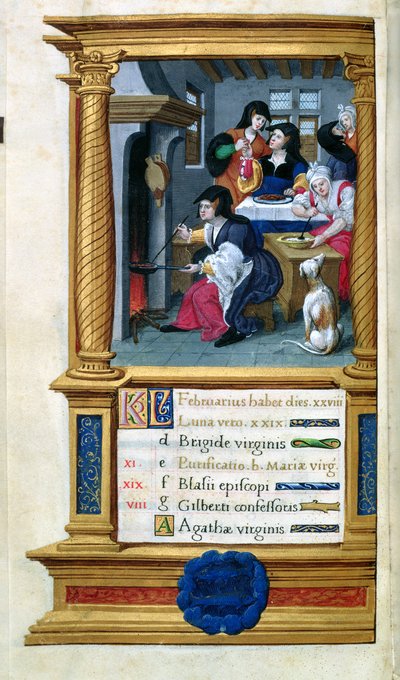 KL Februarius habet dies. xxviii
Luna vero. xxix.
d Brigide virginis
xi. e Purificatio. b. Mariæ virg.
xix. f Blasii episcopi
viii g Gilberti confessoris
A Agathæ virginis